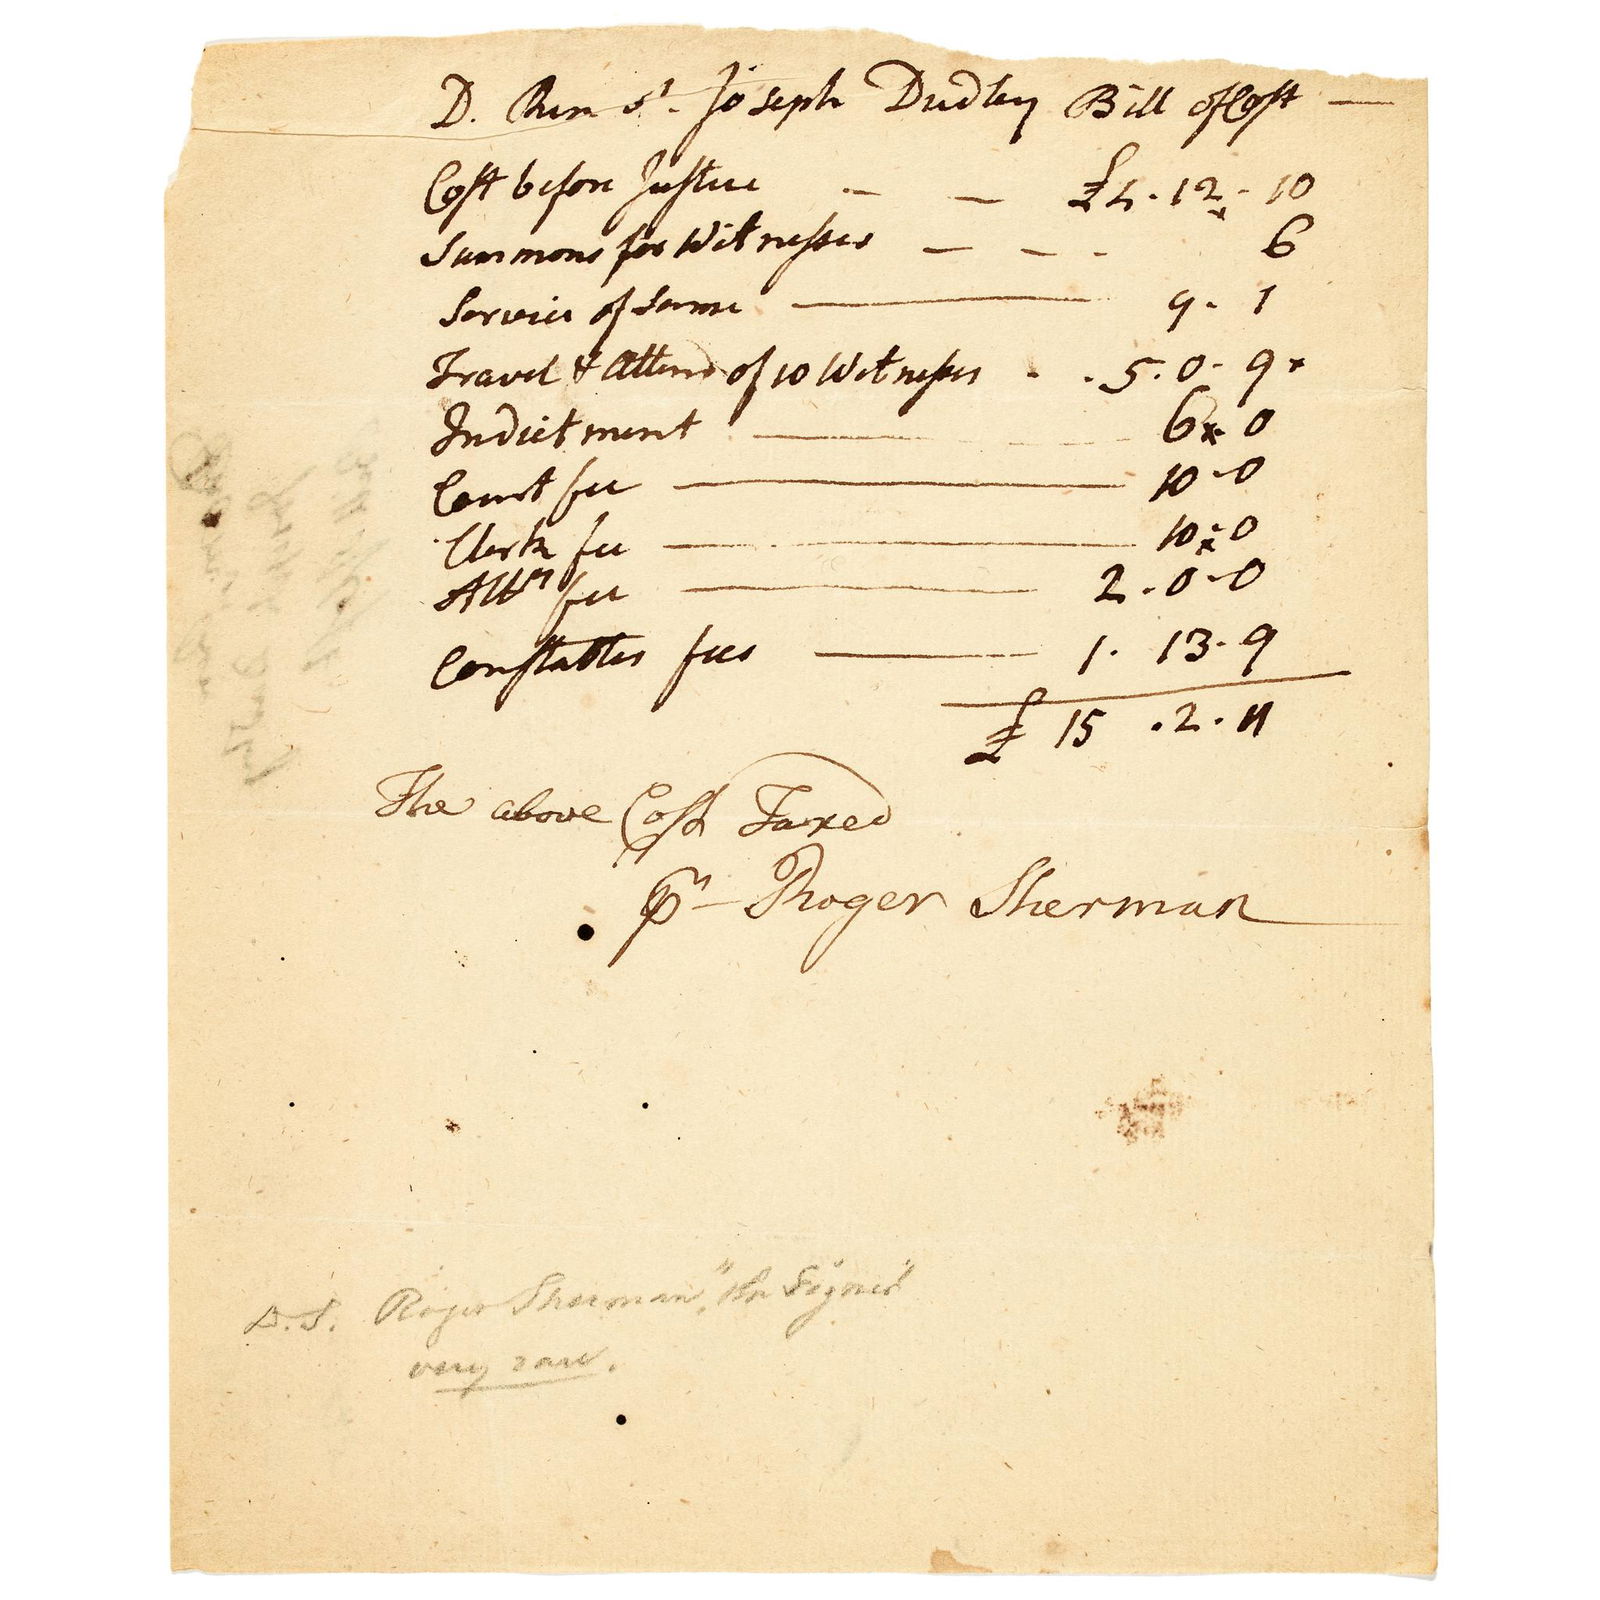 D. Joseph Dudley Bill of Cost —
Cost before Justice — — £4 . 12 - 10
Summons for Witnesses — — - 6
Service of Same — 9 - 1
Travel & Attend of 10 Witnesses - - 5 . 0 - 9
Indictment — 6 - 0
Court fee — 10 - 0
Clerk fee — 10 - 0
Attrs fee — 2 . 0 - 0
Constables fees — 1 . 13 - 9
£ 15 . 2 . 11
The above Cost Taxed
pr Roger Sherman
D.S. Roger Sherman, "The Signer"
very rare.